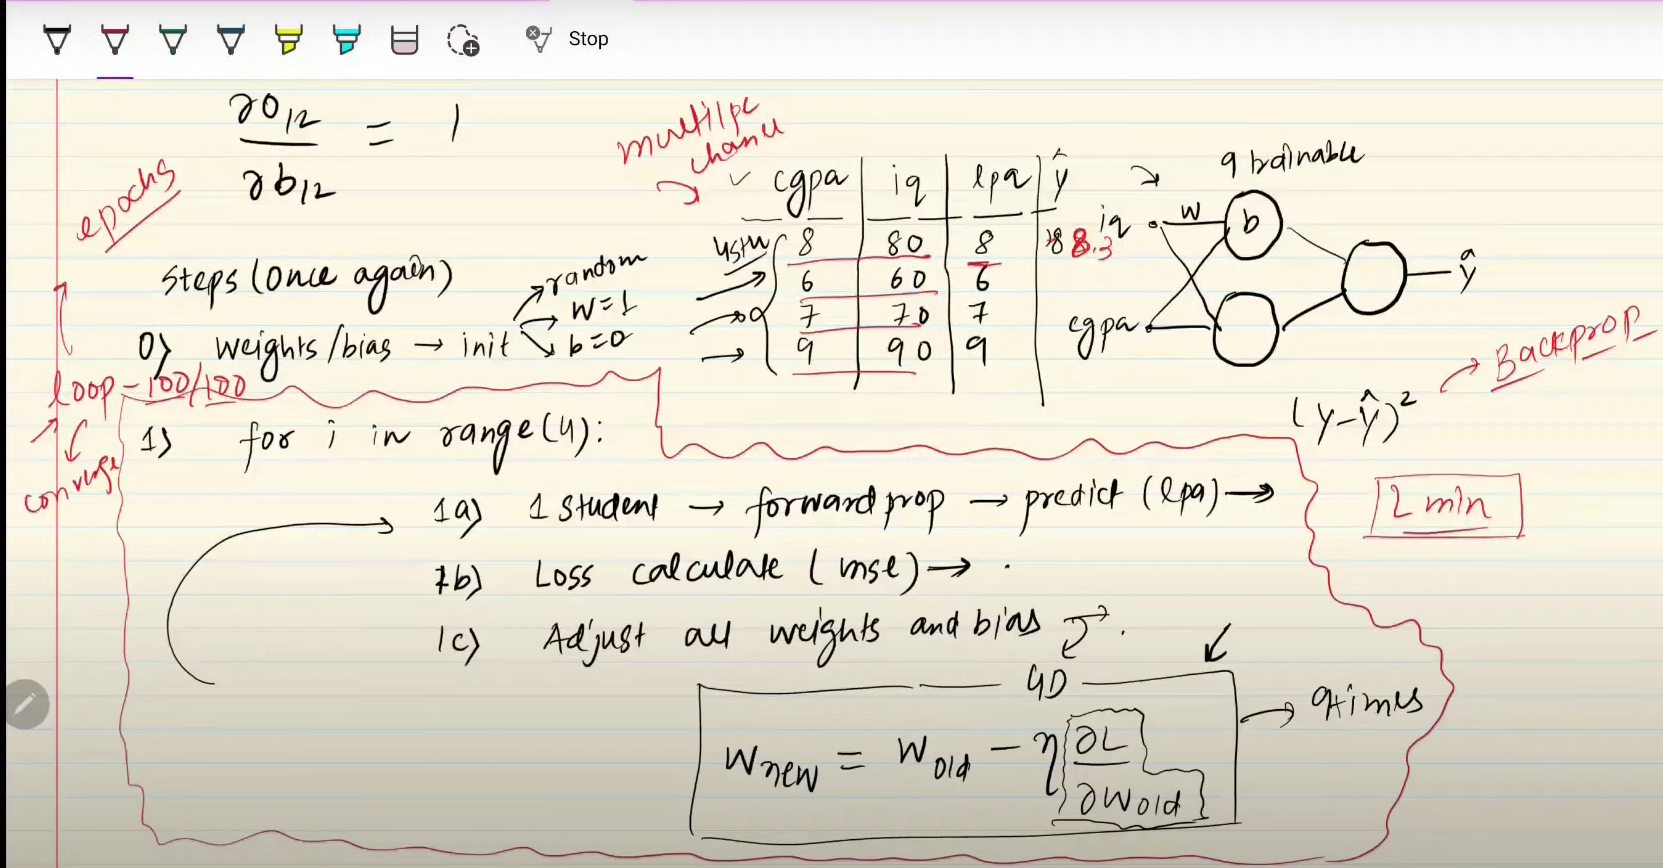 Stop
∂O12 / ∂b12 = 1
epochs
multilpe chance
cgpa | iq | lpa | ŷ
8 | 80 | 8 | 8.3
6 | 60 | 6
7 | 70 | 7
9 | 90 | 9
9 trainable
iq w b
cgpa
ŷ
Steps (once again)
0) weights/bias → init
random
w=1
b=0
loop - 100/100
converge
(y-ŷ)² → Backprop
1) for i in range(4):
1a) 1 student → forward prop → predict (lpa) →
2 min
1b) Loss calculate (mse) → .
1c) Adjust all weights and bias
GD
Wnew = Wold - η ∂L / ∂Wold
→ 9 times